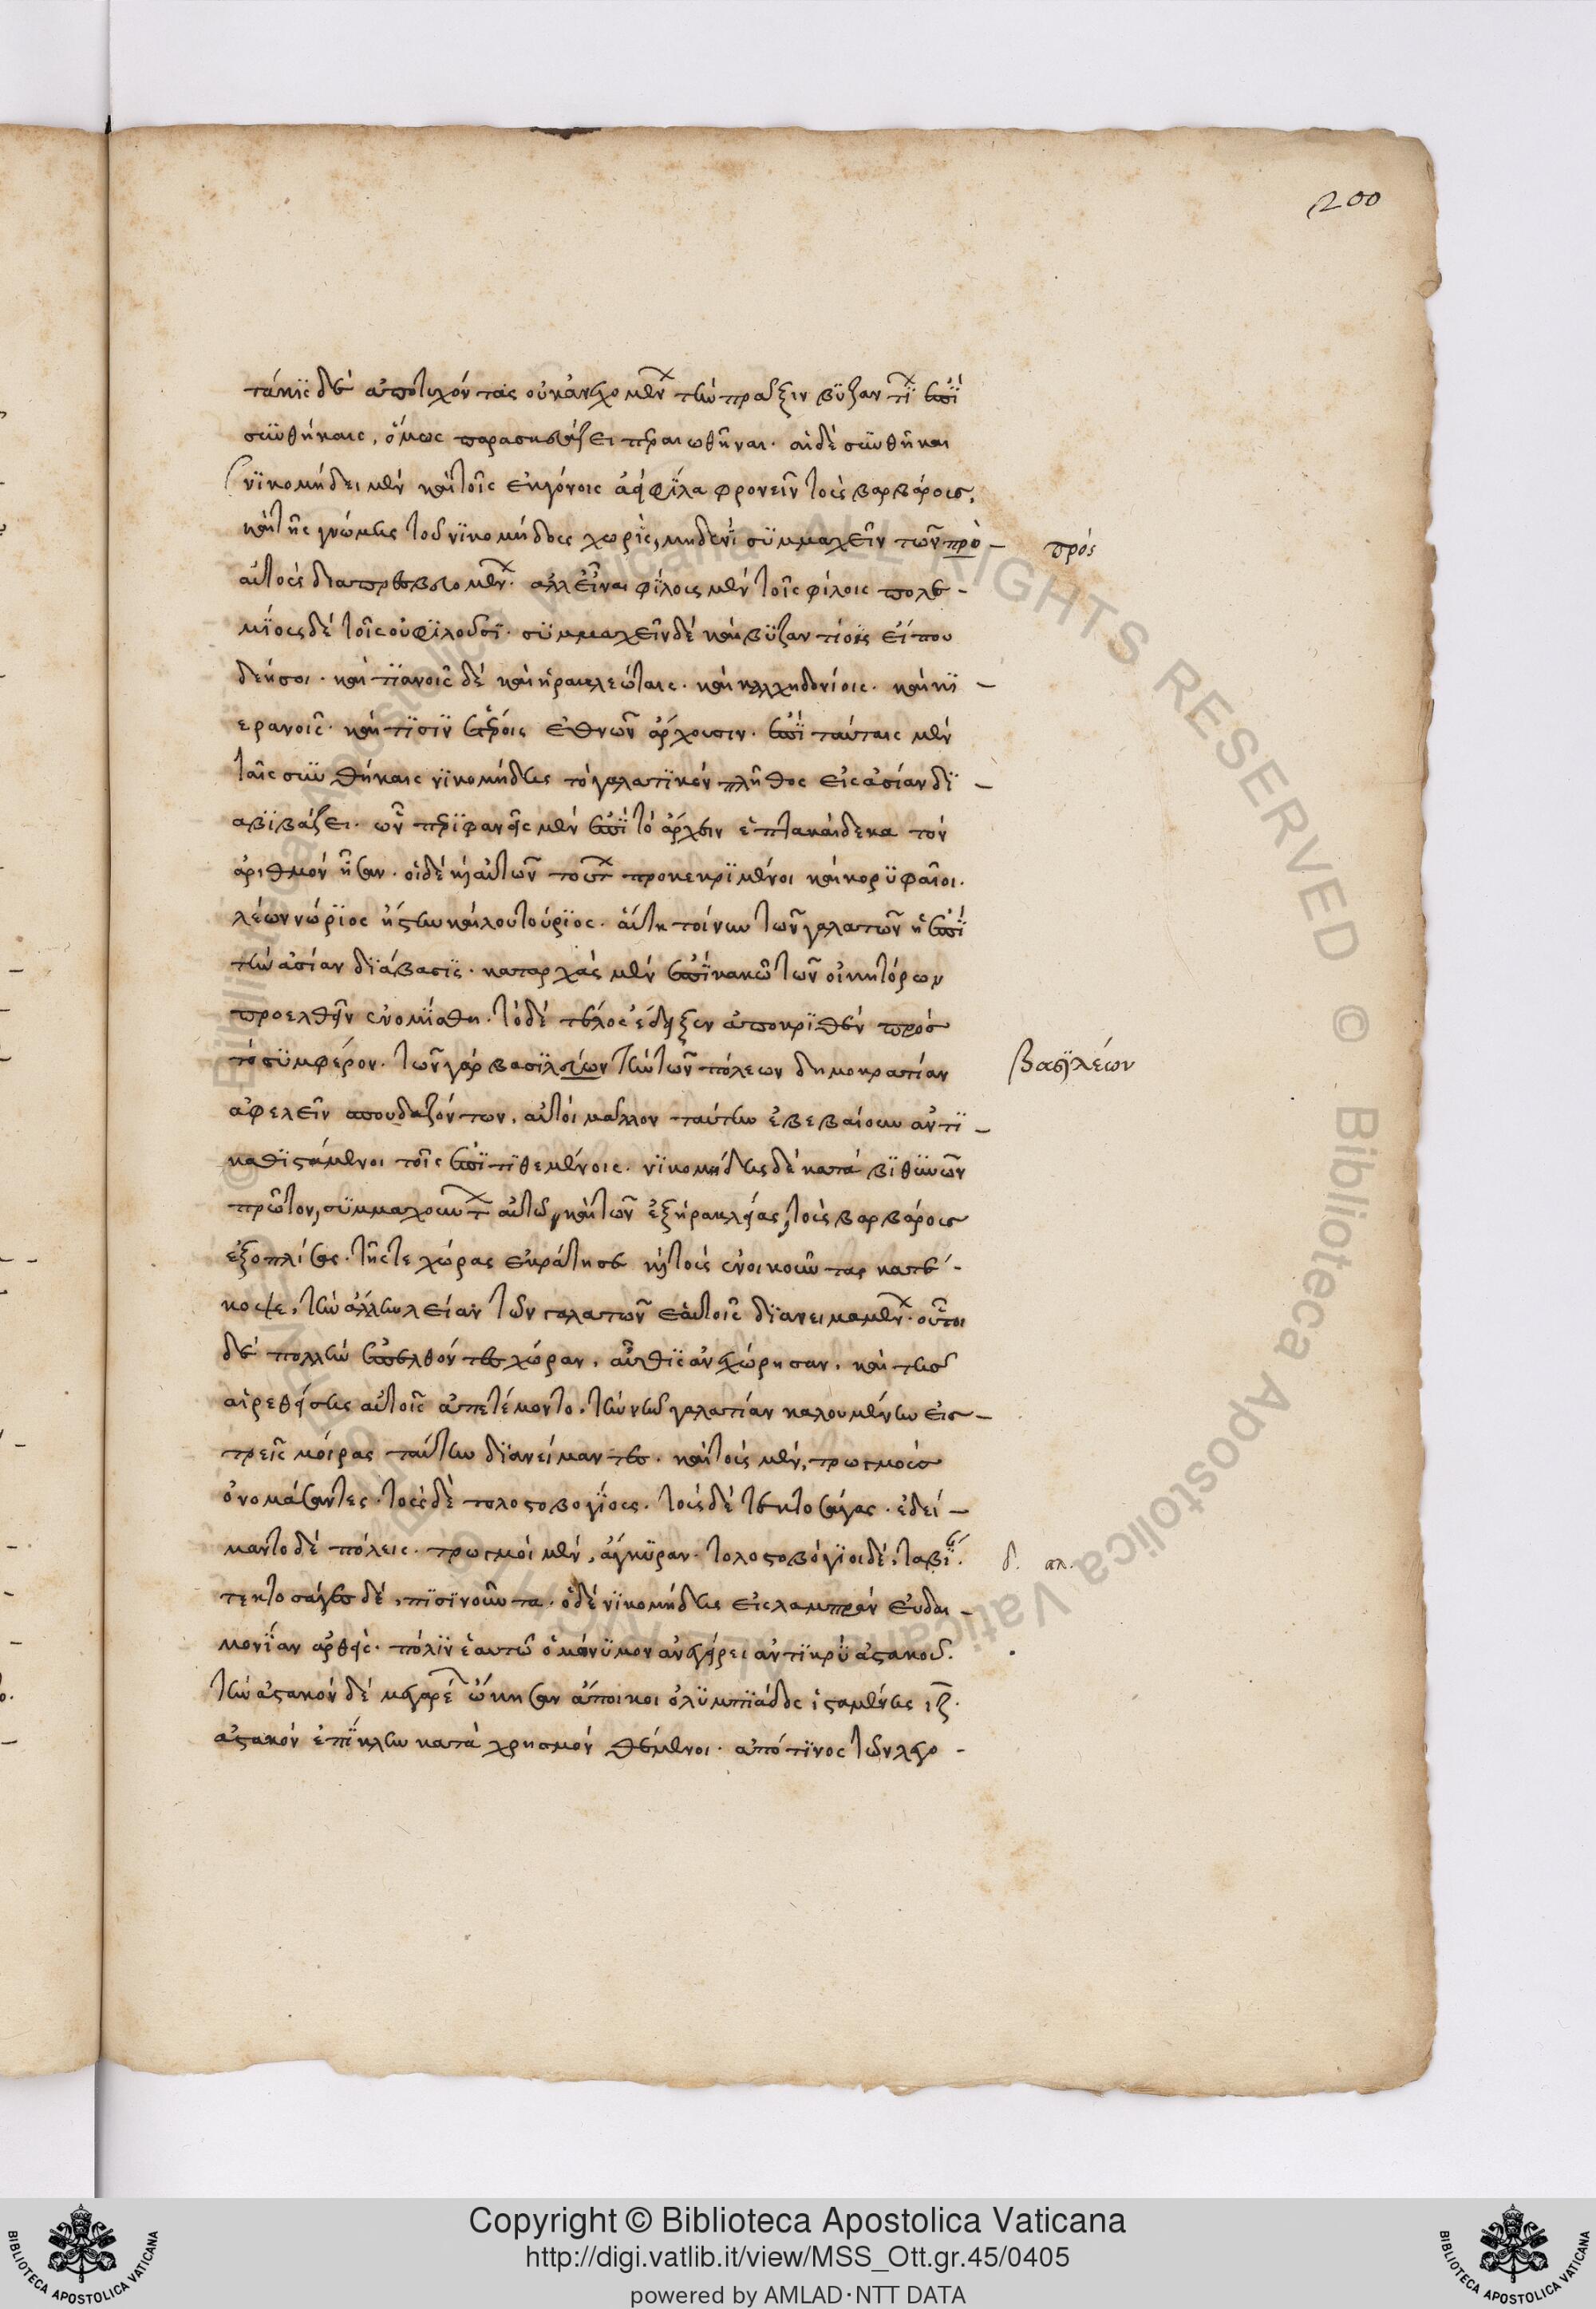 200
τάκις δὲ ἀποτυχόντας οὐκ ἀνεχομένων τὴν πρᾶξιν βϋζαντί ἐπὶ
συνθήκαις, ὅμως παρασκευάζει περαιωθῆναι. αἱ δὲ συνθῆκαι
νϊκομήδει μὲν καὶ τοῖς ἐκγόνοις ἀεὶ φίλα φρονεῖν τοὺς βαρβάρους,
καὶ τῆς γνώμης τοῦ νϊκομήδους χωρὶς, μηδενὶ συμμαχεῖν τῶν πρὸ– πρός
αὐτοὺς διαπρεσβευομένων. ἀλλ' εἶναι φίλους μὲν τοῖς φίλοις πολε–
μίους δὲ τοῖς οὐ φιλοῦσϊ. συμμαχεῖν δὲ καὶ βϋζαντίοις εἴ που
δεήσοι. καὶ τϊανοῖς δὲ καὶ ἡρακλεώταις. καὶ καλχηδονίοις. καὶ κϊ–
ερανοῖς. καὶ τϊσϊν ἑτέροις ἐθνῶν ἄρχουσιν. ἐπὶ ταύταις μὲν
ταῖς συνθήκαις νϊκομήδης τὸ γαλατϊκὸν πλῆθος εἰς ἀσίαν δϊ–
αβϊβάζει. ὧν περϊφανεῖς μὲν ἐπὶ τὸ ἄρχειν ἑπτακαίδεκα τὸν
ἀριθμὸν ἦσαν. οἱ δὲ καὶ αὐτῶν τούτων προκεκρϊμένοι καὶ κορϋφαῖοι.
λεωννώρϊος ἤστην καὶ λουτούρϊος. αὕτη τοίνυν τῶν γαλατῶν ἡ ἐπὶ
τὴν ἀσίαν δϊάβασϊς. κατ' ἀρχὰς μὲν ἐπὶ κακῶ τῶν οἰκητόρων
προελθεῖν ἐνομίσθη. τὸ δὲ τέλος ἔδειξεν ἀποκρϊθὲν πρὸς
τὸ συμφέρον. τῶν γὰρ βασϊλείων τὴν τῶν πόλεων δημοκρατίαν βασϊλέων
ἀφελεῖν σπουδαζόντων. αὐτοὶ μᾶλλον ταύτην ἐβεβαίουν ἀντϊ–
καθϊστάμενοι τοῖς ἐπιτϊθεμένοις. νϊκομήδης δὲ κατὰ βϊθυνῶν
πρῶτον, συμμαχούντων αὐτῶ καὶ τῶν ἐξ ἡρακλείας, τοὺς βαρβάρους
ἐξοπλίσας. τῆς τε χώρας ἐκράτησε καὶ τοὺς ἐνοικοῦντας κατέ–
κοψε, τὴν ἄλλην λείαν τῶν γαλατῶν ἑαυτοῖς δϊανειμαμένων. οὗτοι
δὲ πολλὴν ἐπελθόντες χώραν. αὖθϊς ἀνεχώρησαν. καὶ τῆς
αἱρεθείσης αὐτοῖς ἀπετέμοντο, τὴν νῦν γαλατίαν καλουμένην εἰς–
τρεῖς μοίρας ταύτην δϊανείμαντες. καὶ τοὺς μὲν, τρωγμοὺς
ὀνομάσαντες. τοὺς δὲ τολοστοβογίους. τοὺς δὲ τεκτοσάγας. ἐδεί–
μαντο δὲ πόλεις. τρωγμοὶ μὲν, ἄγκϋραν. τολοστοβόγϊοι δὲ, ταβϊ.
τεκτοσάγες δὲ, πϊσϊνοῦντα. ὁ δὲ νϊκομήδης εἰς λαμπρὰν εὐδαι–
μονίαν ἀρθεὶς. πόλϊν ἑαυτῶ ὁμώνϋμον ἀνεγείρει ἀντϊκρὺ ἀστακοῦ.
τὴν ἀστακὸν δὲ μεγαρέων ὤκησαν ἄποικοι ὀλϋμπϊάδος ἱσταμένης ιζ.
ἀστακὸν ἐπίκλην κατὰ χρησμὸν θέμενοι. ἀπό τϊνος τῶν λεγο–
Copyright © Biblioteca Apostolica Vaticana
http://digi.vatlib.it/view/MSS_Ott.gr.45/0405
powered by AMLAD·NTT DATA